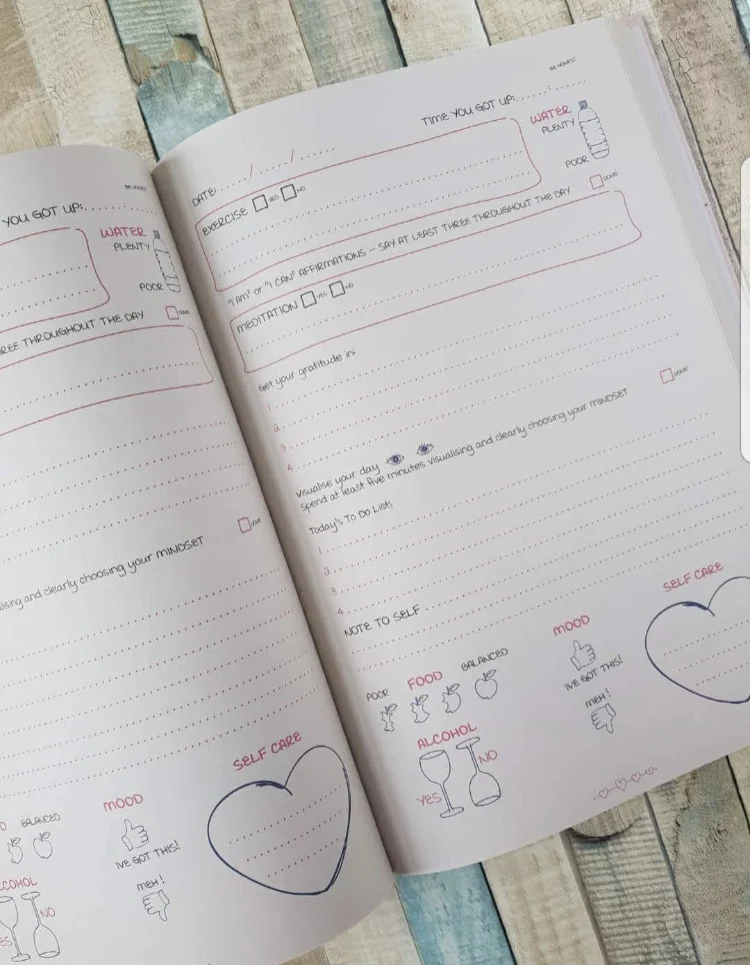 YOU GOT UP:
BE HONEST
WATER
PLENTY
POOR
DONE
REE THROUGHOUT THE DAY
DONE
lising and clearly choosing your MINDSET
SELF CARE
BALANCED
MOOD
IVE GOT THIS!
MEH!
COHOL
ES
NO
BE HONEST
TIME YOU GOT UP:
DATE: / /
WATER
PLENTY
POOR
EXERCISE YES NO
DONE
"I AM" or "I CAN" AFFIRMATIONS - SAY AT LEAST THREE THROUGHOUT THE DAY
MEDITATION YES NO
Get your gratitude in:
1.
2.
3.
4.
DONE
Visualise your day
Spend at least five minutes visualising and clearly choosing your MINDSET
Today's To Do List;
1.
2.
3.
4.
NOTE TO SELF
POOR FOOD BALANCED
MOOD
SELF CARE
IVE GOT THIS!
MEH!
ALCOHOL
YES
NO